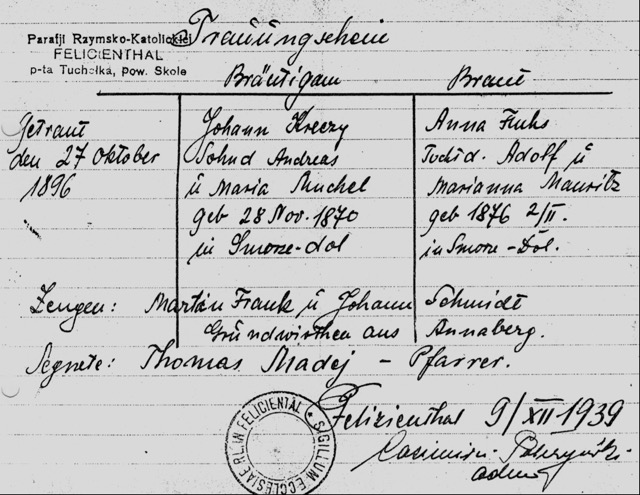 Trauungschein
Parafji Rzymsko-Katolickiej
FELICIENTHAL
p-ta Tuchelka, pow. Skole
Bräutigam Braut
Getraut Johann Kreczy Anna Fuhs
den 27 Oktober Sohn d Andreas Tocht d. Adolf ü
1896 ü Maria Muchel Marianna Mauritz
geb 28 Nov. 1870 geb 1876 2/II.
in Smorze-dol in Smorze-Dol.
Zeugen: Martin Frank ü Johann Schmidt
Grundwirthen aus Annaberg.
Segnete: Thomas Madej - Pfarrer.
Felizienthal 9/XII-1939
SIGILLUM ECCLESIAE RL. IN FELICIENTAL
Casimirus